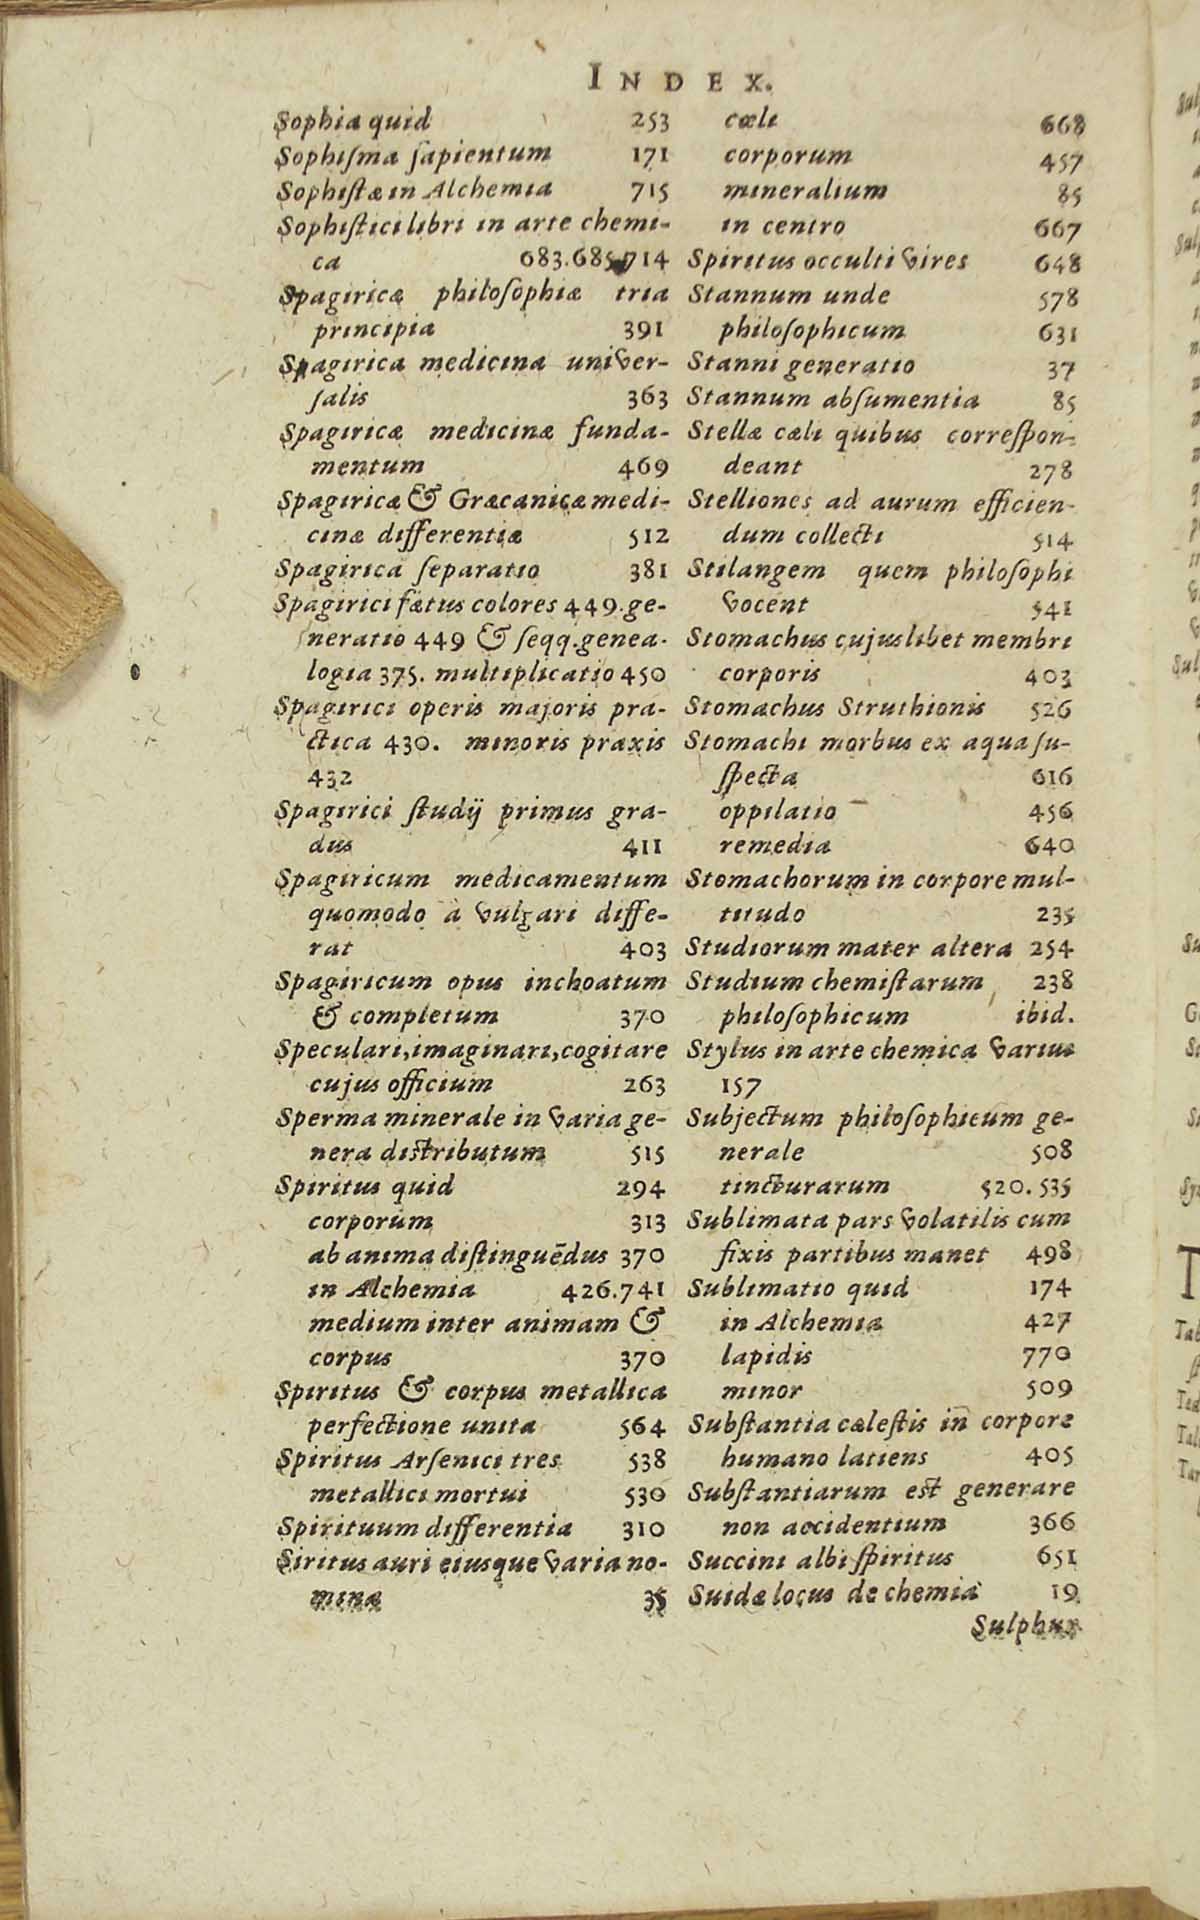 INDEX.
Sophia quid 253
Sophiſma ſapientum 171
Sophiſtæ in Alchemia 715
Sophiſtici libri in arte chemi-
ca 683.685.714
Spagiricæ philoſophiæ tria
principia 391
Spagirica medicina univer-
ſalis 363
Spagiricæ medicinæ funda-
mentum 469
Spagiricæ & Græcanicæ medi-
cinæ differentiæ 512
Spagirica ſeparatio 381
Spagirici fætus colores 449. ge-
neratio 449 & ſeqq. genea-
logia 375. multiplicatio 450
Spagirici operis majoris pra-
ctica 430. minoris praxis
432
Spagirici ſtudij primus gra-
dus 411
Spagiricum medicamentum
quomodo à vulgari diffe-
rat 403
Spagiricum opus inchoatum
& completum 370
Speculari, imaginari, cogitare
cujus officium 263
Sperma minerale in varia ge-
nera diſtributum 515
Spiritus quid 294
corporum 313
ab anima diſtinguẽdus 370
in Alchemia 426.741
medium inter animam &
corpus 370
Spiritus & corpus metallica
perfectione unita 564
Spiritus Arſenici tres 538
metallici mortui 530
Spirituum differentia 310
Siritus auri eiusque varia no-
mina 35
cæli 668
corporum 457
mineralium 85
in centro 667
Spiritus occulti vires 648
Stannum unde 578
philoſophicum 631
Stanni generatio 37
Stannum abſumentia 85
Stellæ cæli quibus correſpon-
deant 278
Stelliones ad aurum efficien-
dum collecti 514
Stilangem quem philoſophi
vocent 541
Stomachus cujuslibet membri
corporis 403
Stomachus Struthionis 526
Stomachi morbus ex aqua ſu-
ſpecta 616
oppilatio 456
remedia 640
Stomachorum in corpore mul-
titudo 235
Studiorum mater altera 254
Studium chemiſtarum 238
philoſophicum ibid.
Stylus in arte chemica varius
157
Subjectum philoſophicum ge-
nerale 508
tincturarum 520.535
Sublimata pars volatilis cum
fixis partibus manet 498
Sublimatio quid 174
in Alchemia 427
lapidis 770
minor 509
Subſtantia cæleſtis in corpore
humano latiens 405
Subſtantiarum eſt generare
non accidentium 366
Succini albi ſpiritus 651
Suidæ locus de chemia 19
Sulphur